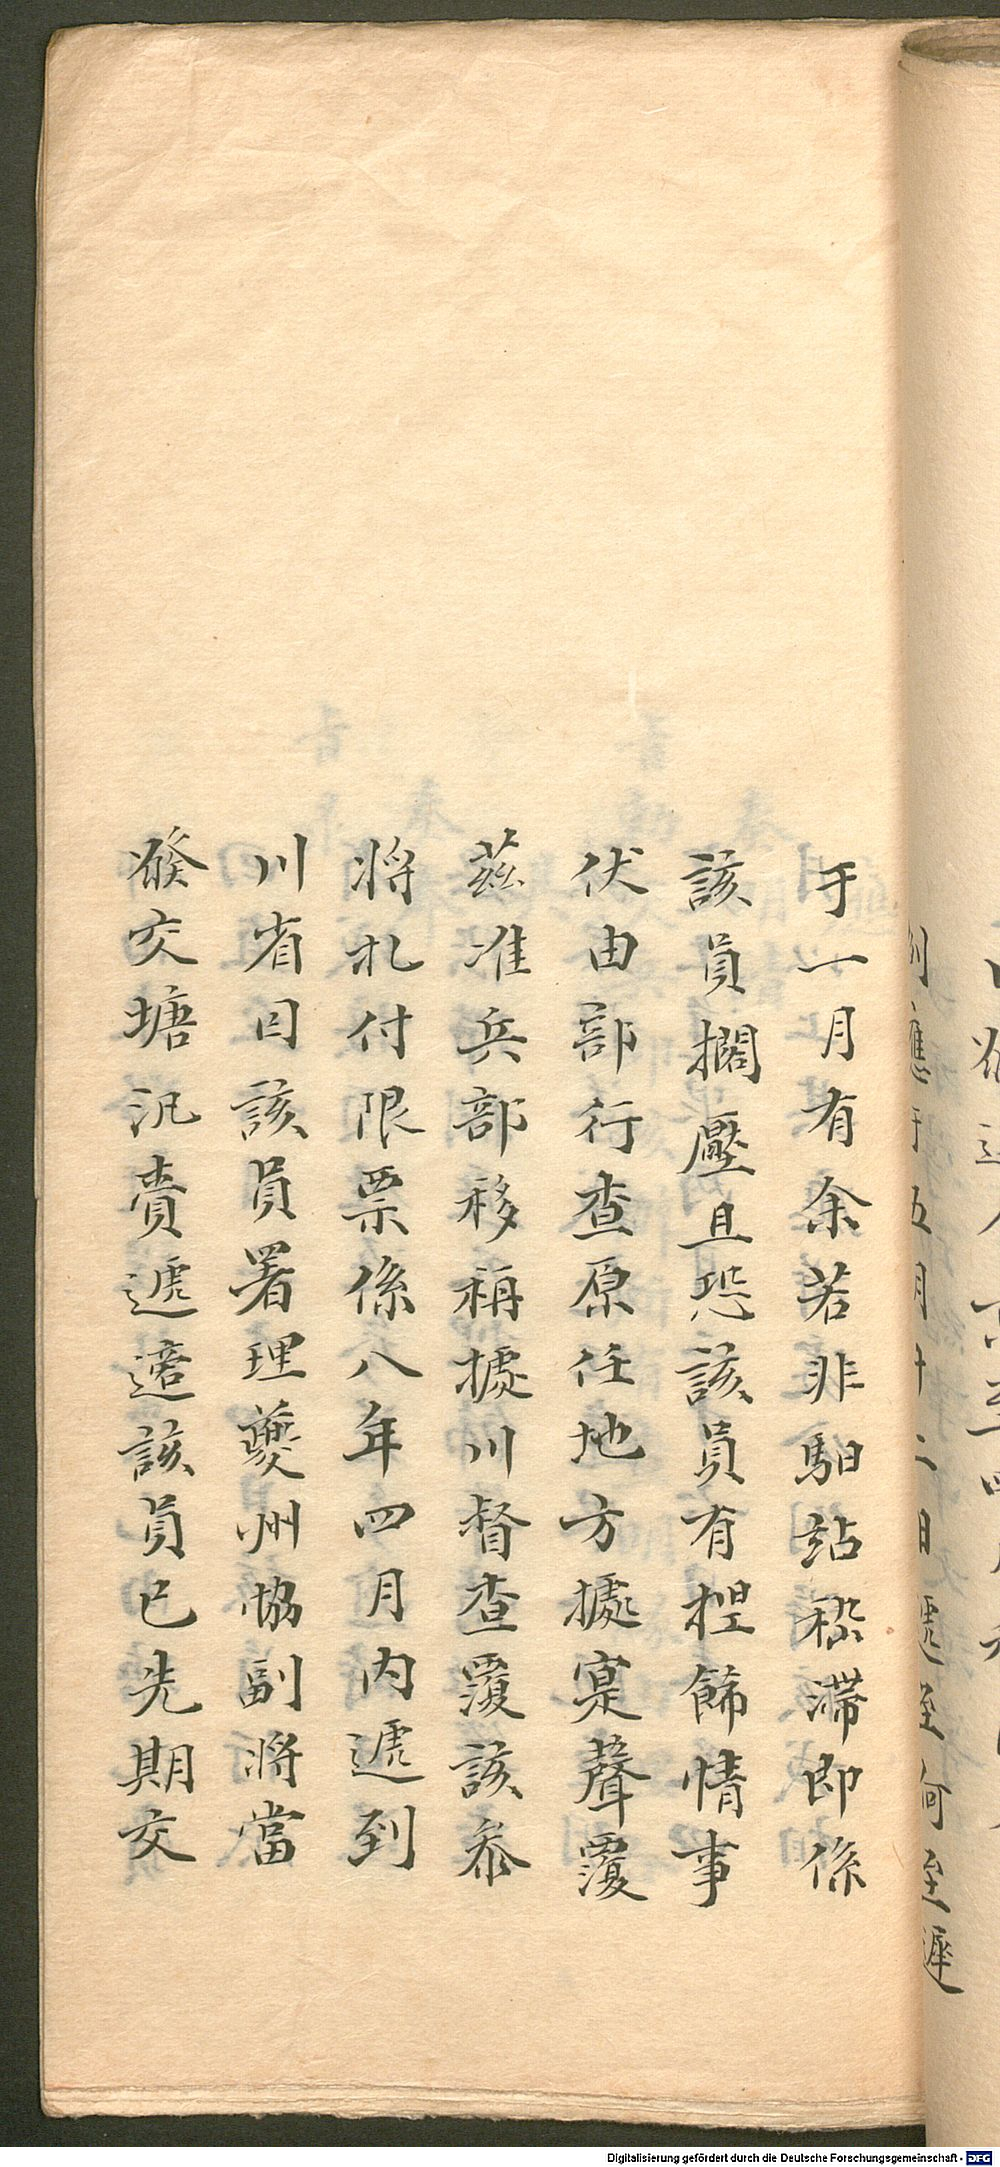 例應于五月十二日遞至何至遲
于一月有余若非馹站稽滯即係
該員擱壓且恐該員有捏飾情事
伏由部行查原任地方據寔聲覆
茲准兵部移稱據川督查覆該叅
將札付限票係八年四月內遞到
川省因該員署理夔州協副將當
發交塘汛賫遞適該員已先期交
Digitalisierung gefördert durch die Deutsche Forschungsgemeinschaft - DFG